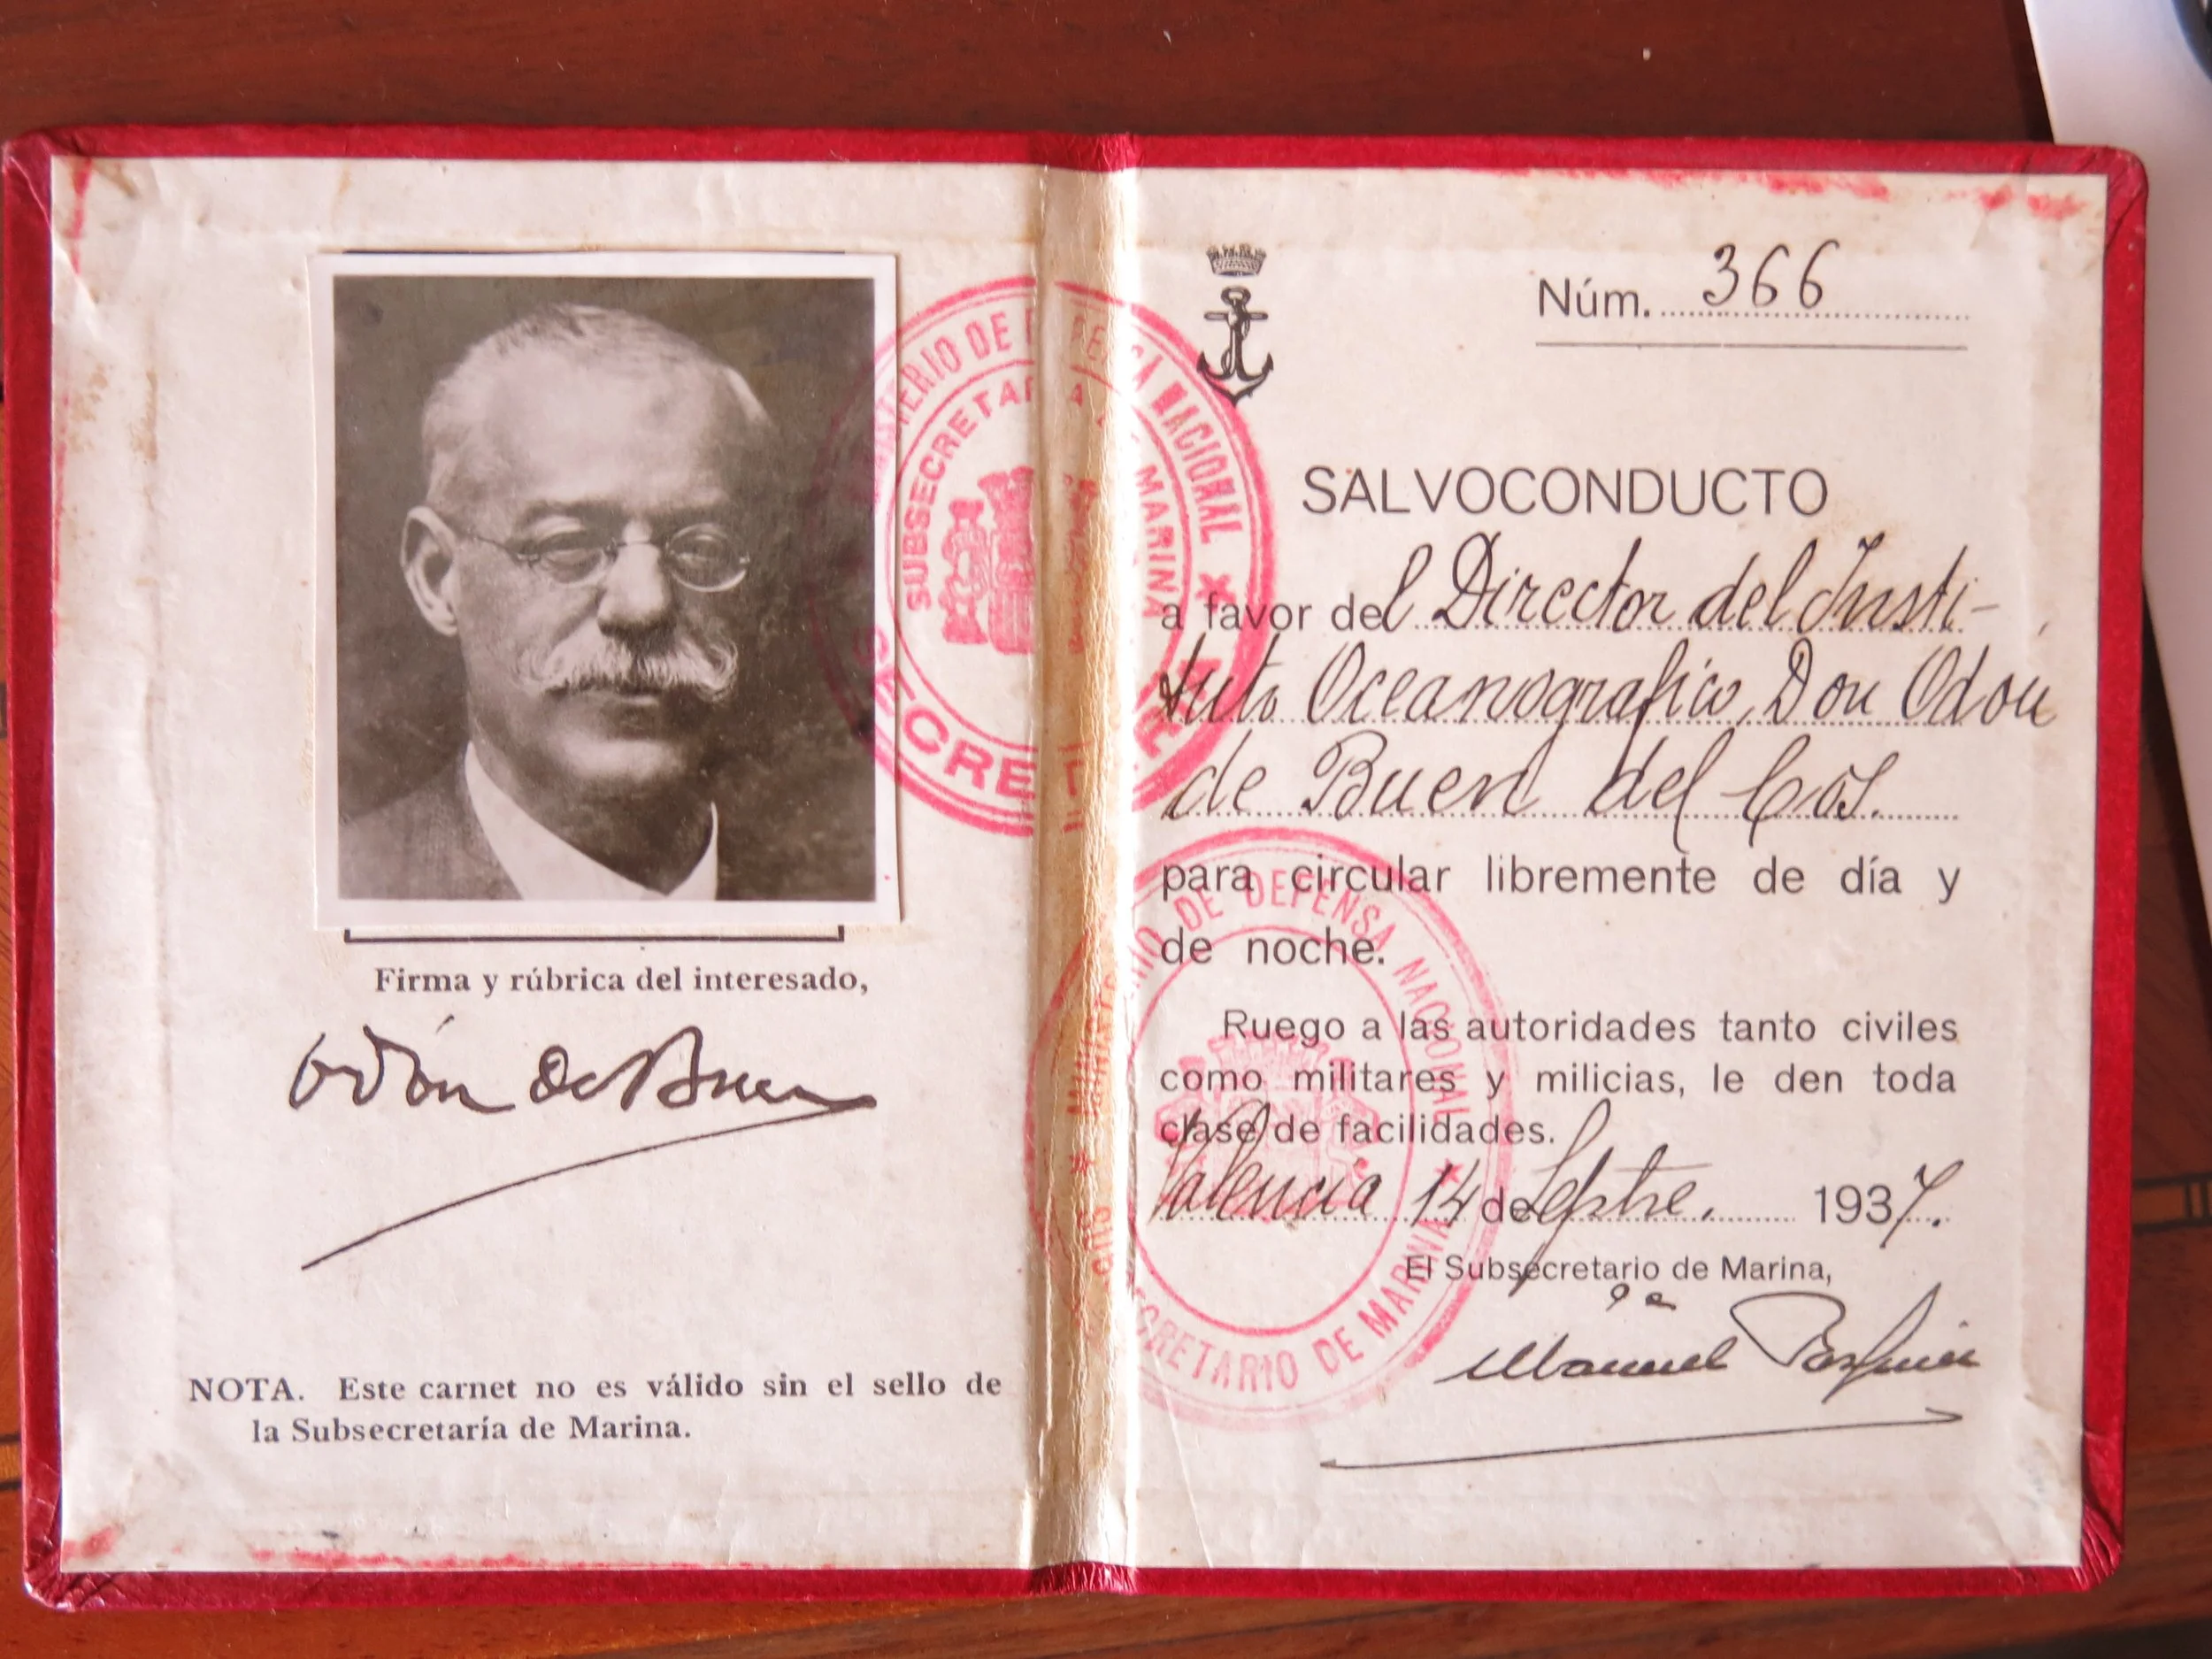 Firma y rúbrica del interesado,
Odón de Buen
NOTA. Este carnet no es válido sin el sello de
la Subsecretaría de Marina.
MINISTERIO DE DEFENSA NACIONAL
SUBSECRETARIA DE MARINA
Núm. 366
SALVOCONDUCTO
a favor del Director del Insti-
tuto Oceanografico, Don Odon
de Buen del Cos.
para circular libremente de día y
de noche.
Ruego a las autoridades tanto civiles
como militares y milicias, le den toda
clase de facilidades.
Valencia 14 de Septbre. 1937.
El Subsecretario de Marina,
Manuel
MINISTERIO DE DEFENSA NACIONAL
SUBSECRETARIO DE MARINA